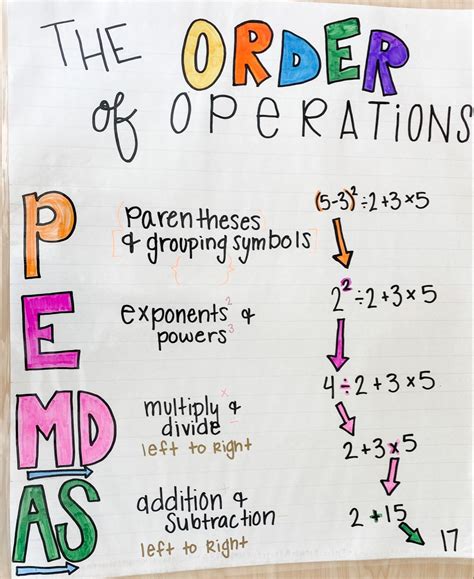 THE ORDER
of OPERATIONS
P
(Parentheses
& grouping symbols]
{ }
(5-3)²÷2+3×5
E
exponents ² &
powers ³
2²÷2+3×5
4÷2+3×5
MD
multiply × &
divide ÷
left to Right
2+3×5
AS
addition &
Subtraction
left to Right
2+15
17